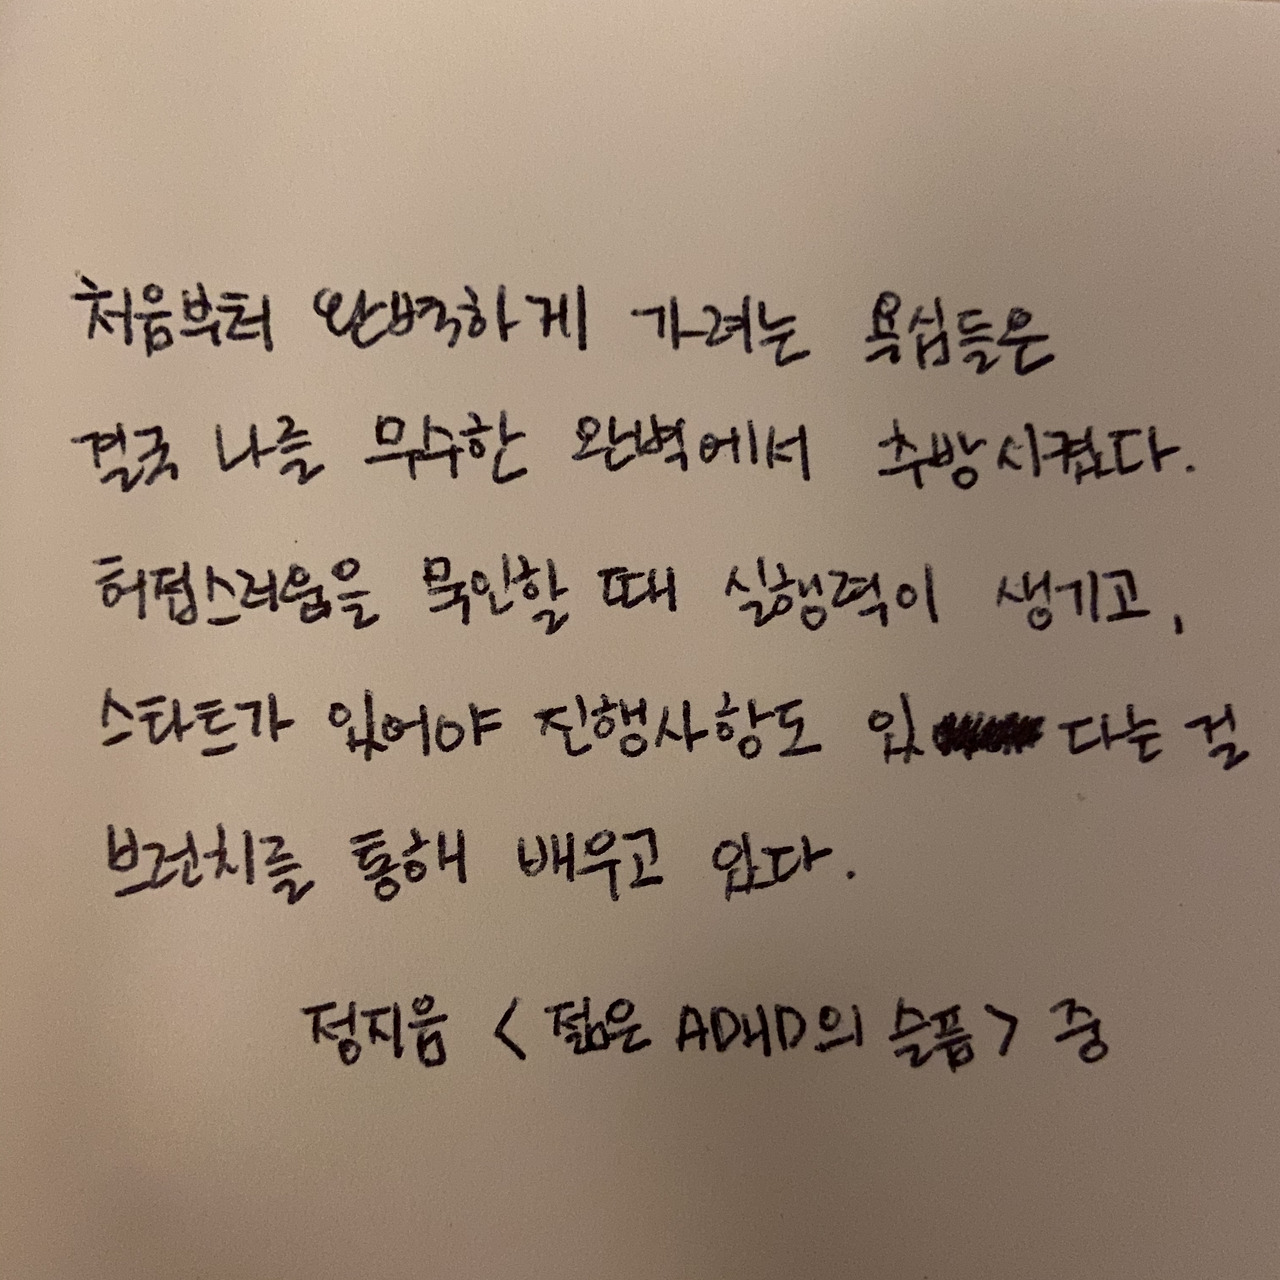 처음부터 완벽하게 가려는 욕심들은
결국 나를 무수한 완벽에서 추방시켰다.
허접스러움을 묵인할 때 실행력이 생기고,
스타트가 있어야 진행사항도 있 다는 걸
브런치를 통해 배우고 있다.
정지음 <젊은 ADHD의 슬픔> 중